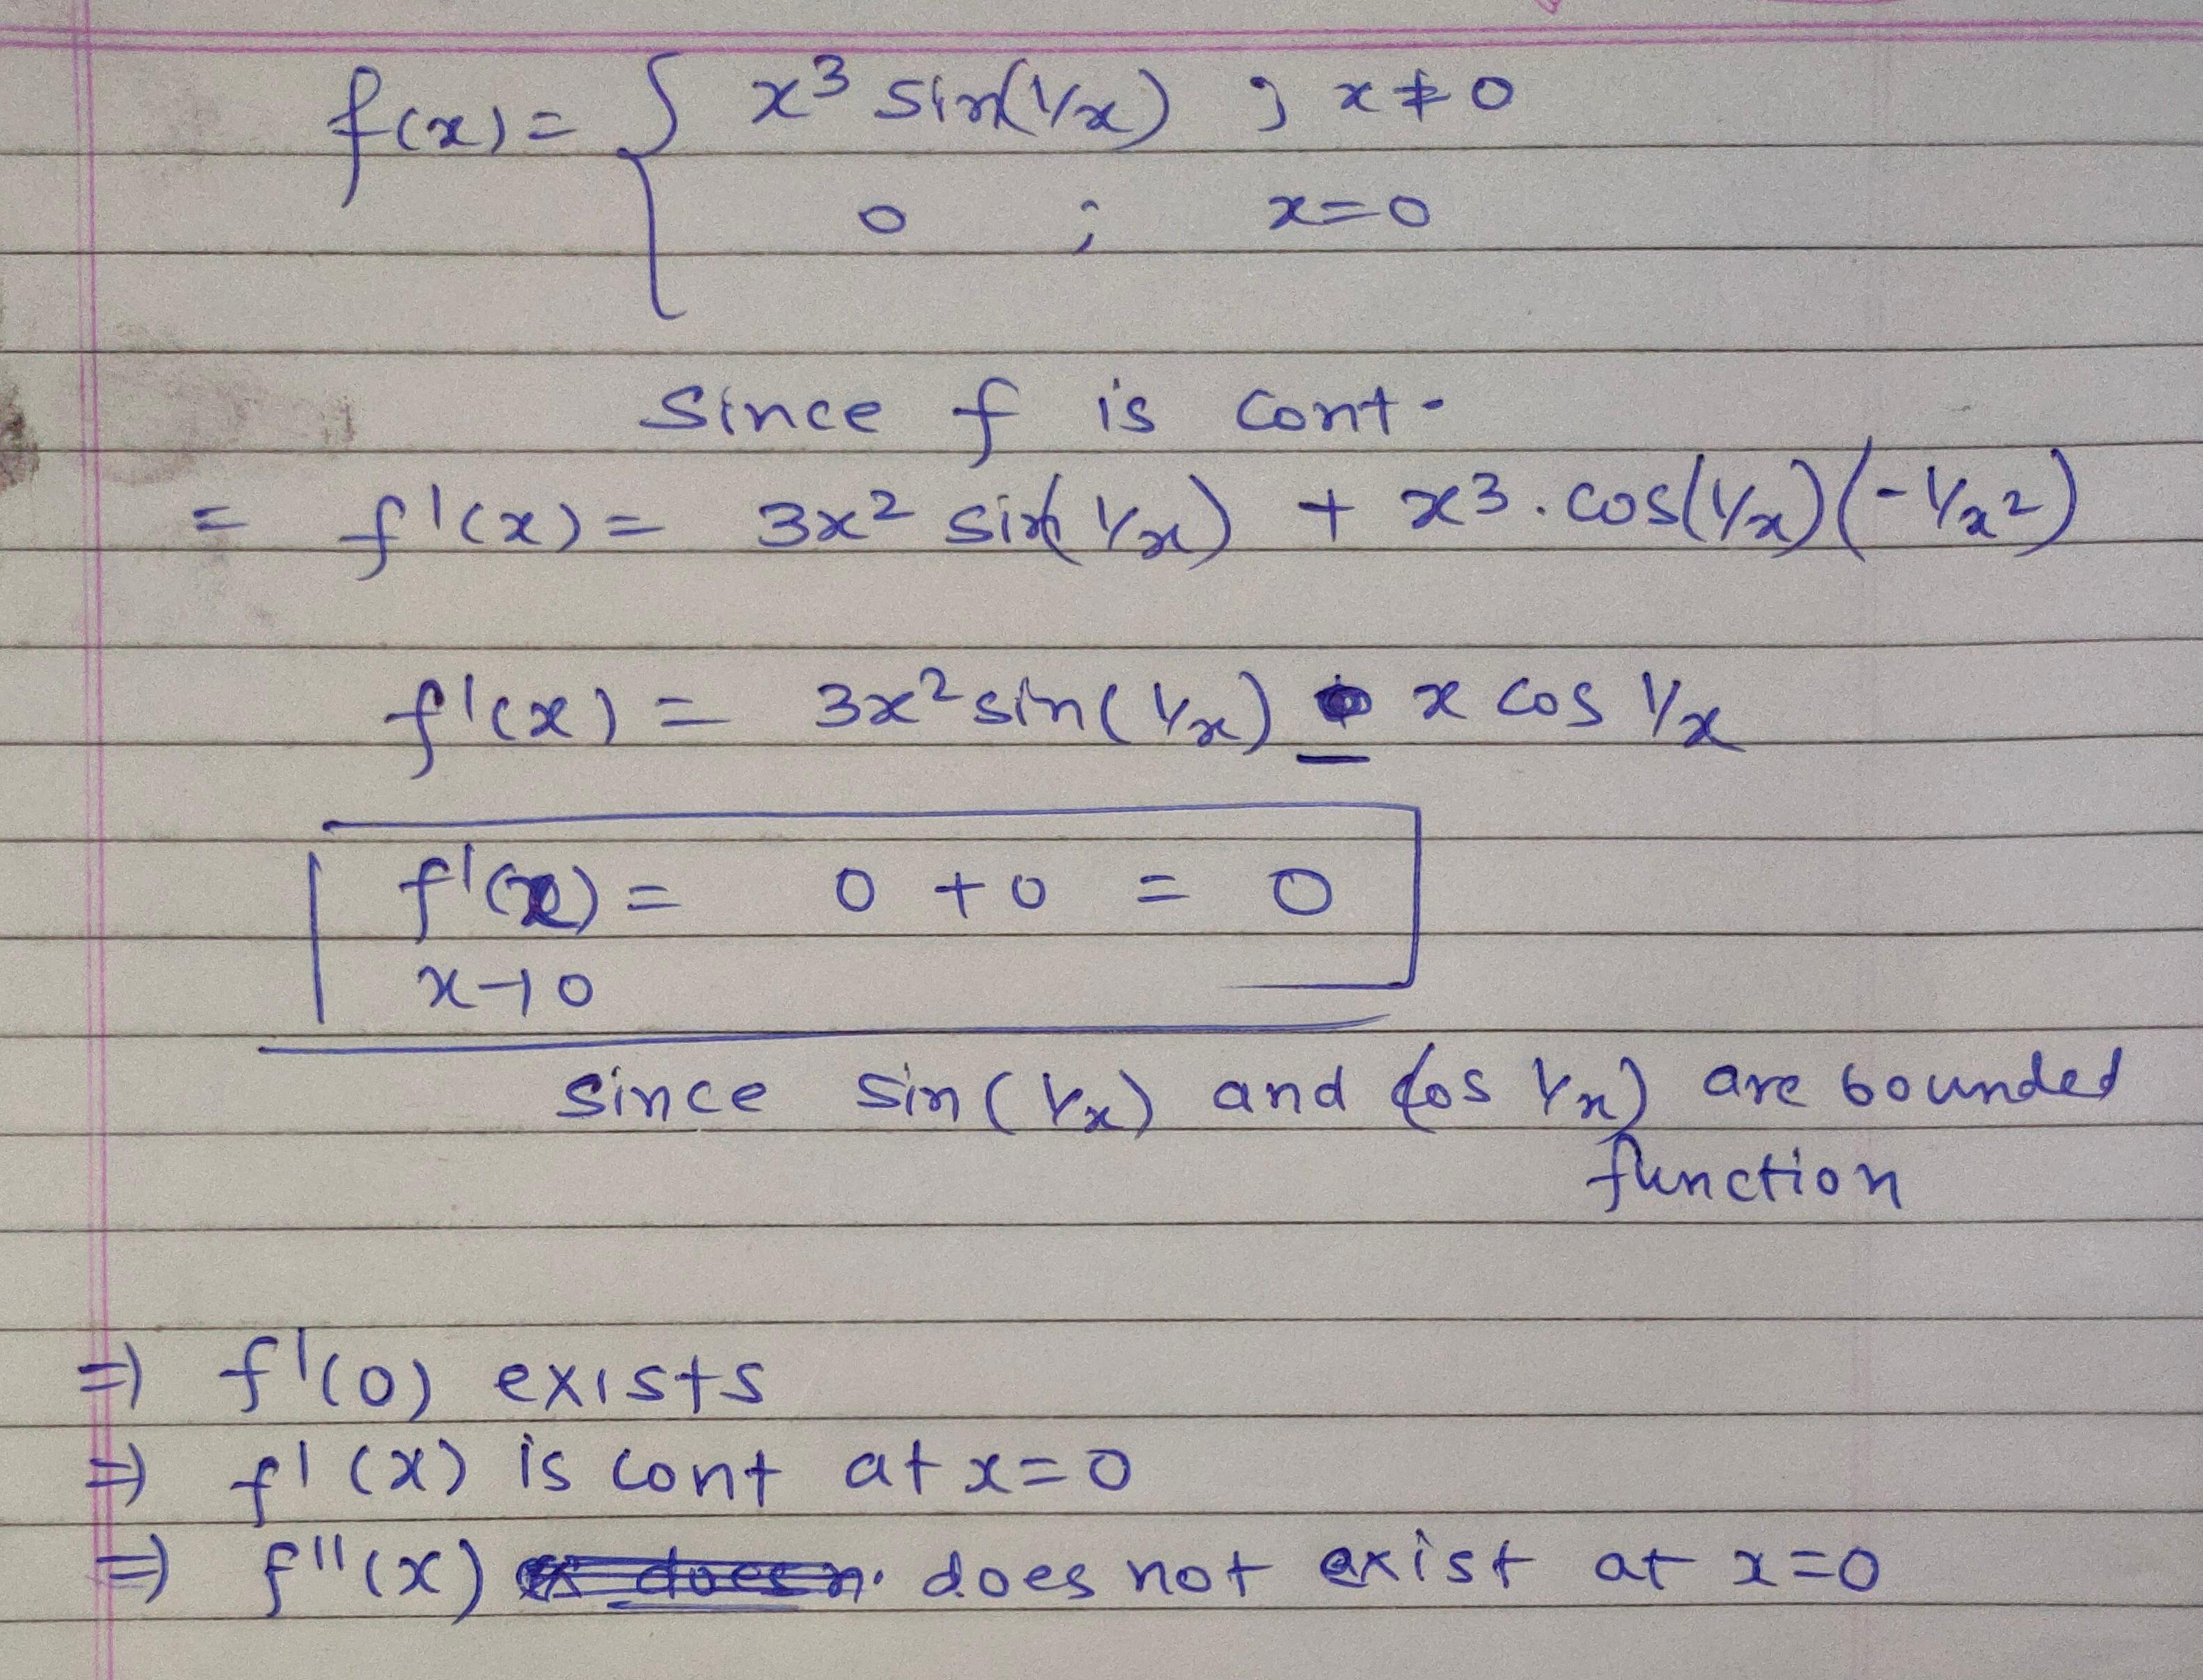 f(x) = { x³ sin(1/x) ; x ≠ 0
0 ; x=0
since f is cont.
= f'(x) = 3x² sin(1/x) + x³. cos(1/x) (-1/x²)
f'(x) = 3x² sin(1/x) - x cos 1/x
f'(x) = 0 + 0 = 0
x→0
since sin(1/x) and cos 1/x) are bounded
function
⇒ f'(0) exists
⇒ f'(x) is cont at x=0
⇒ f''(x) does not exist at x=0